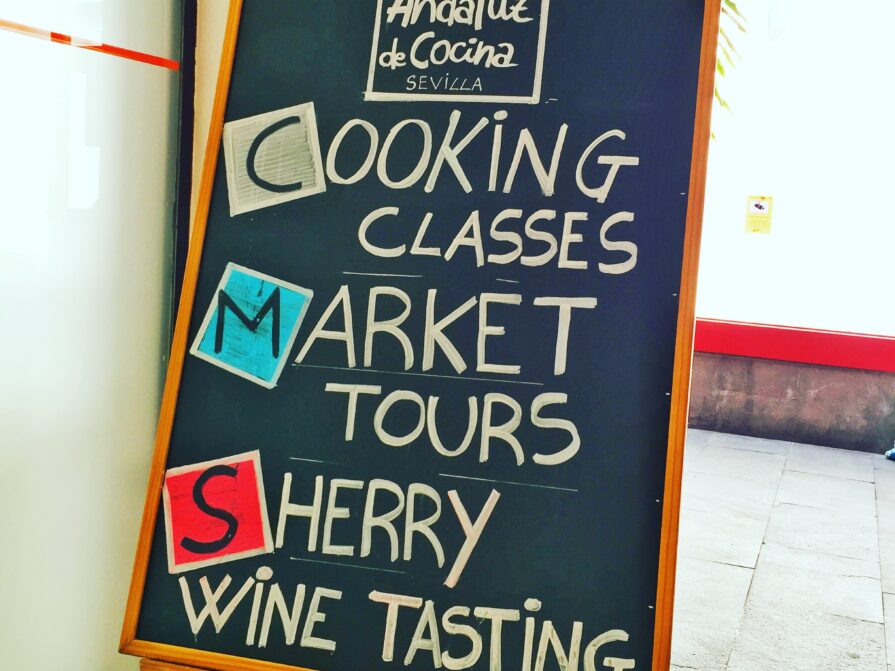 Andaluz
de Cocina
SEViLLA
COOKiNG
CLASSES
MARKET
TOURS
SHERRY
WiNE TASTiNG